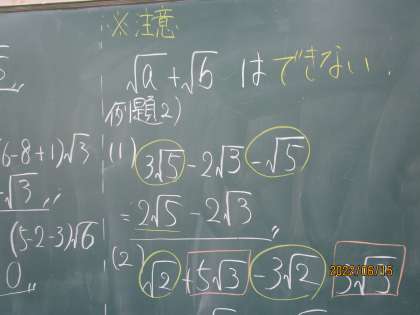 ※注意
√a+√b はできない.
例題2)
(1) 3√5-2√3-√5
=2√5-2√3
(2) √2+5√3-3√2
6-8+1)√3
√3
(5-2-3)√6
0